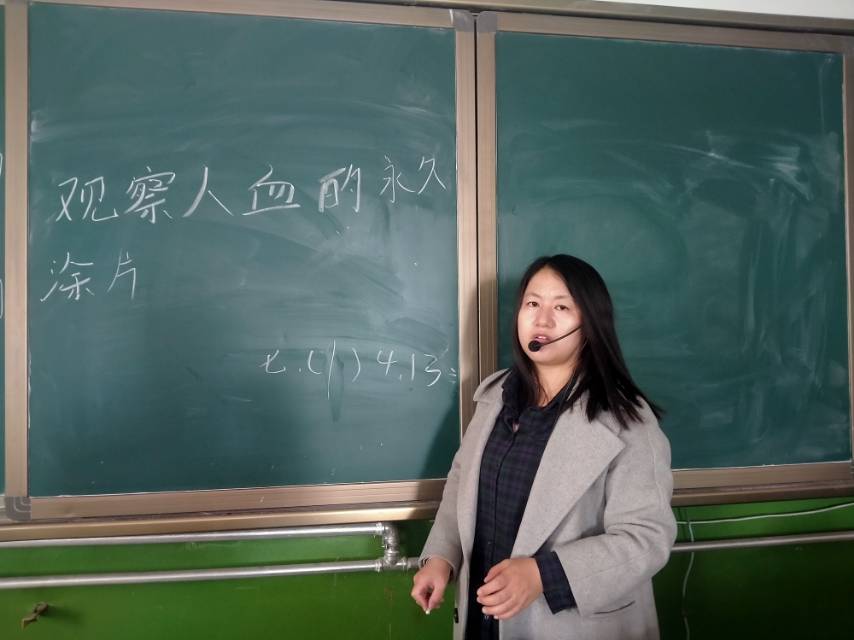 观察人血的永久
涂片
七.(1)4.13